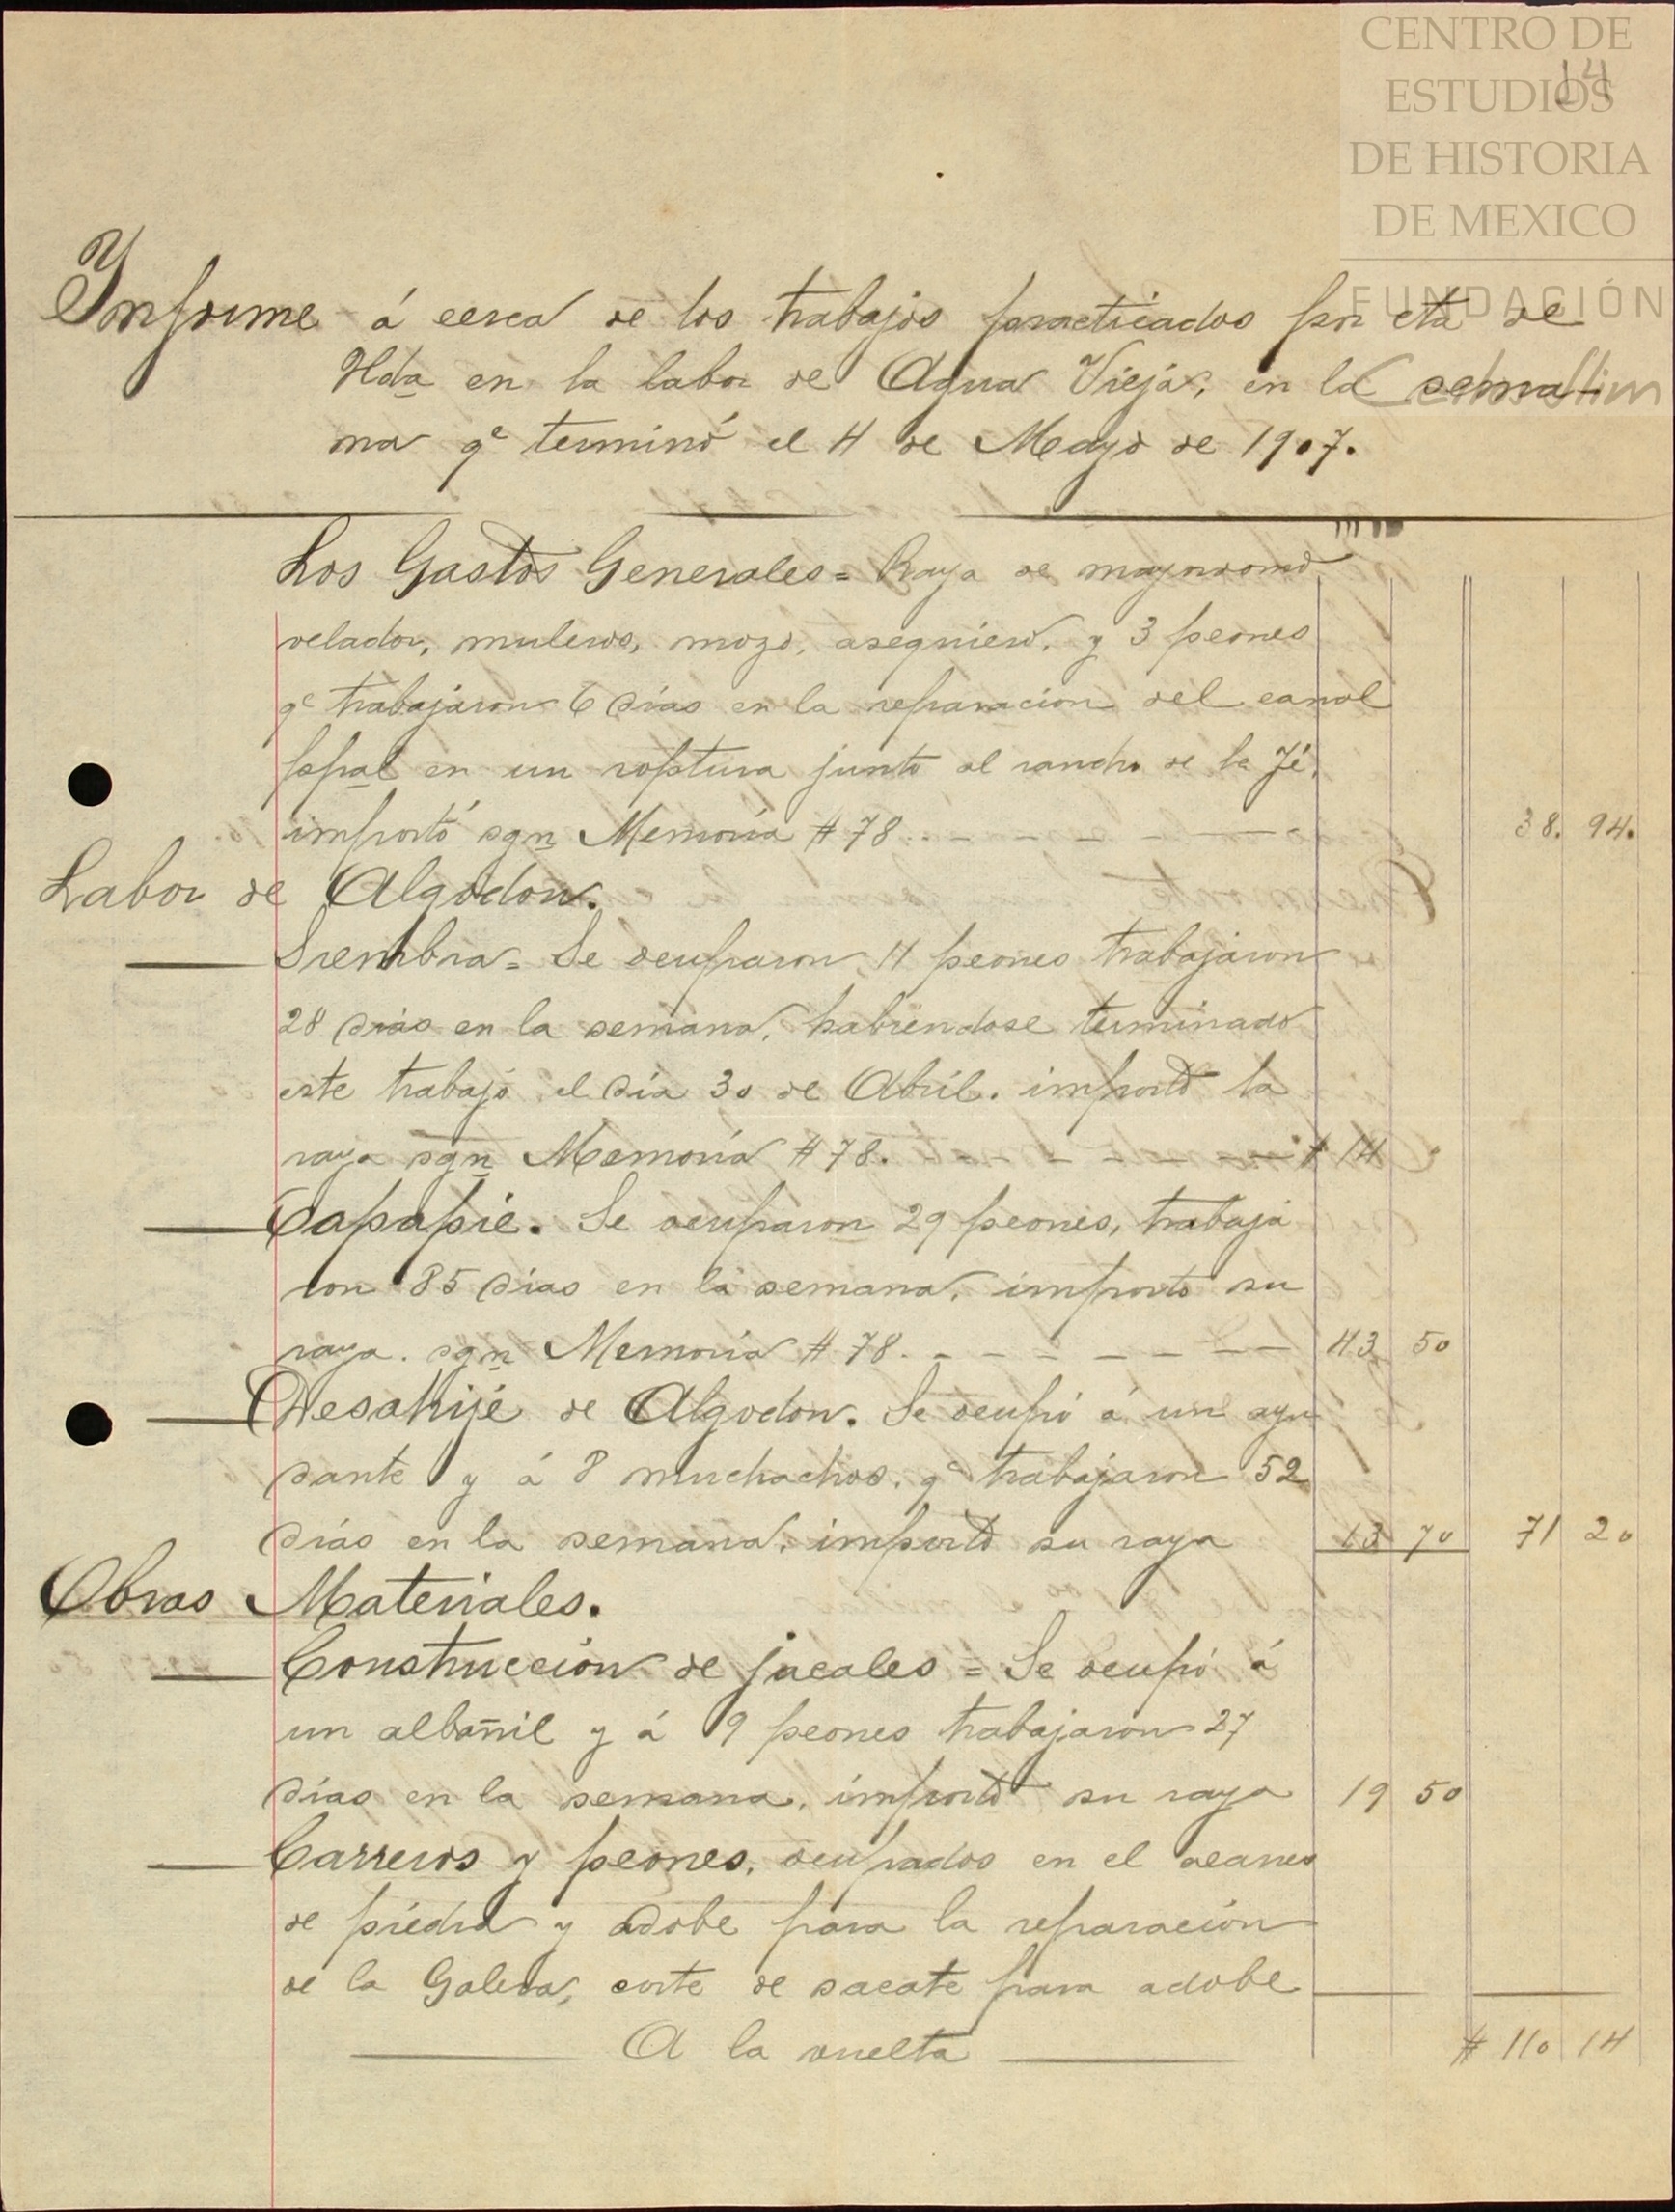 CENTRO DE
ESTUDIOS
DE HISTORIA
DE MEXICO
FUNDACIÓN
14
Informe á cerca de los trabajos practicados por cta de
Hda en la labor de Agua Vieja, en la sema-
na qe terminó el 4 de Mayo de 1907.
Los Gastos Generales = Raya de mayordomo
velador, muleros, mozo, asequiero, y 3 peones
qe trabajaron 6 dias en la reparacion del canal
ppal en un roptura junto al rancho de la Fé,
importó sgn Memoria # 78 38. 94.
Labor de Algodon.
Siembra = Se ocuparon 11 peones trabajaron
28 dias en la semana, habiendose terminado
este trabajo el dia 30 de Abril. importó la
raya sgn Memoria # 78. $ 14
Tapapie. Se ocuparon 29 peones, trabaja
ron 85 dias en la semana, importo su
raya. sgn Memoria # 78. 43 50
Desahijé de Algodon. Se ocupó á un ayu
dante y á 8 muchachos. qe trabajaron 52
dias en la semana. importó su raya 13 70 71 20
Obras Materiales.
Construccion de jacales = Se ocupó á
un albañil y á 9 peones trabajaron 27
dias en la semana, importó su raya 19 50
Carreros y peones, ocupados en el acarreo
de piedra y adobe para la reparación
de la Galera, corte de sacate para adobe
A la vuelta $ 110 14